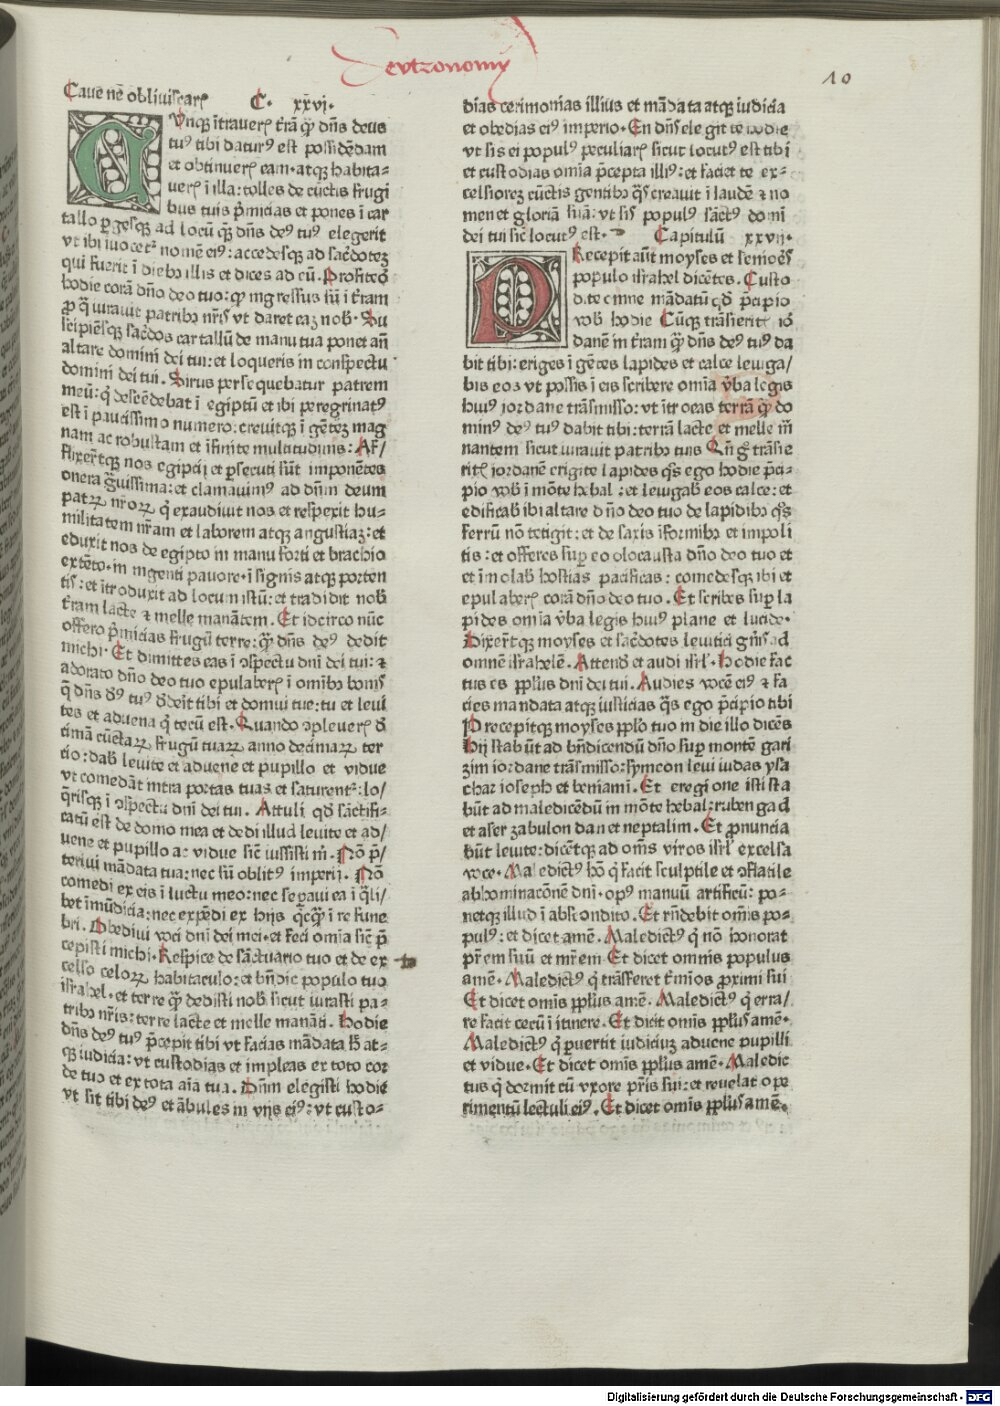 Deutronomij
10
Cave nē obliviscarꝭ C· xxvi·
Cunqꝫ ītraverꝭ t̄rā qͣ dn̄s deus
tuꝰ tibi daturꝰ est possidēdam
et obtinuerꝭ eam· atqꝫ habita-
uerꝭ ī illa: tolles de cūctis frugi
bus tuis p̄micias et pones ī car
tallo ꝑgesqꝫ ad locū qͣꝫ dn̄s deꝰ tuꝰ elegerit
vt ibi īuocetʳ nomē eiꝰ: accedesqꝫ ad sac̄dotez
qui fuerit ī diebꝫ illis et dices ad eū. Profiteor
hodie corā dn̄o deo tuo: qꝫ ingressus sū ī t̄ram
ꝓ qͣ iurauit patribꝫ nr̄is vt daret eaꝫ nob̄· Su
scipiēsqꝫ sac̄dos cartallū de manu tua ponet an̄
altare domini dei tui: et loqueris in conspectu
domini dei tui. Sirus persequebatur patrem
meū: qͥ descēdebat ī egiptū et ibi peregrinatꝰ
est ī paucissimo numero: creuitqꝫ ī gētez mag
nam ac robustam et īfinite multitudinis: Af/
flixer̄tqꝫ nos egiptij et ꝑsecuti sūt imponētes
onera gͣuissima: et clamauimꝰ ad dn̄m deum
patꝝ nroꝝ qͥ exaudiuit nos et respexit hu-
militatem nr̄am et laborem atqꝫ angustiaꝫ: et
eduxit nos de egipto in manu forti et brachio
extēto· in ingenti pauore· ī signis atqꝫ porten
tis: et ītroduxit ad locum istū: et tradidit nob̄
t̄ram lacte ⁊ melle manātem. Et idcirco nūc
offero p̄micias frugū terre: qͣꝫ dn̄s deꝰ dedit
michi· Et dimittes eas ī ↄspectu dn̄i dei tui: ⁊
adorato dn̄o deo tuo epulaberꝭ ī omībꝫ bonis
qͥ dn̄s dꝰ tuꝰ dedeīt tibi et domui tue: tu et leui
tes et aduena qͥ tecū est· Quando ↄpleuerꝭ d̄
timā cūctaꝝ frugū tuaꝝ anno decimaꝝ ter
tio: dab̄ leuite et aduene et pupillo et vidue
vt comedāt intra portas tuas et saturentʳ: lo/
qͥrisqꝫ ī ↄspectu dn̄i dei tui. Attuli qd̄ sāctifi-
catū est de domo mea et dedi illud leuite et ad/
uene et pupillo ac vidue sic̄ iussisti m̄· Nō p̄/
teriui mādata tua: nec sū oblitꝰ imperij. Nō
comedi ex eis ī luctu meo: nec sepaui ea ī qͣli/
bet īmūdicia: nec expēdi ex hijs qͥcqͣꝫ ī re fune
bri. Obediui voci dn̄i dei mei· et feci omīa sic̄ p̄
cepisti michi· Respice de sāctuario tuo et de ex
celso celoꝝ habitaculo: et bn̄dic populo tuo
israhel· et terre qͣꝫ dedisti nob̄ sicut iurasti pa-
tribꝫ nr̄is: terre lacte et melle manāti. Hodie
dn̄s deꝰ tuꝰ p̄cepit tibi vt facias mādata h̄ at-
qꝫ iudicia: vt custodias et impleas ex toto cor
de tuo et ex tota aīa tua. Dn̄m elegisti hodie
vt sit tibi deꝰ et ābules in vijs eiꝰ: vt custo-
dias cerimonias illius et mādata atqꝫ iudicia
et obedias eiꝰ imperio· En dn̄s elegit te hodie
vt sis ei populꝰ peculiarꝭ sicut locutꝰ est tibi
et custodias omīa p̄cepta illiꝰ: et faciet te ex-
celsiorez cūctis gentibꝫ qͣs creauit ī laudē ⁊ no
men et gloriā suā: vt sis populꝰ sāctꝰ domī
dei tui sic̄ locutꝰ est· Capitulū xxvii·
PRecepit aūt moyses et seniores
populo israhel dicētes. Custo
dite omne mādatū qd̄ p̄cipio
vob̄ hodie Cūqꝫ trāsieritis ior
danē in t̄ram qͣꝫ dn̄s deꝰ tuꝰ da
bit tibi: eriges ī gētes lapides et calce leuiga/
bis eos vt possis ī eis scribere omīa v̄ba legis
huiꝰ iordane trāsmisso: vt ītroeas terrā qͣꝫ do
minꝰ deꝰ tuꝰ dabit tibi: terrā lacte et melle m̄
nantem sicut iurauit patribꝫ tuis Qn̄ gͦ trāsie
ritꝭ iordanē erigite lapides qͦs ego hodie p̄ci-
pio vob̄ ī mōte hebal: et leuigab̄ eos calce: et
edificab̄ ibi altare dn̄o deo tuo de lapidibꝫ qͦs
ferrū nō tetigit: et de saxis īformibꝫ et impoli
tis: et offeres suꝑ eo olocausta dn̄o deo tuo et
et īmolab̄ hostias pacificas: comedesqꝫ ibi et
epulaberꝭ corā dn̄o deo tuo. Et scribes suꝑ la
pides omīa v̄ba legis huiꝰ plane et lucide·
Dixer̄tqꝫ moyses et sac̄dotes leuitici gn̄s ad
omnē israhelē. Attend̄ et audi isrl̄· Hodie fac
tus es ppl̄us dn̄i dei tui. Audies vocē eiꝰ ⁊ fa
cies mandata atqꝫ iusticias qͣs ego p̄cipio tibi
Precepitqꝫ moyses ppl̄o tuo in die illo dicēs
Hij stabūt ad bn̄dicendū dn̄o suꝑ montē gari
zim iordane trāsmisso: symeon leui iudas ysa
char ioseph et beniami. Et e regione isti sta
būt ad maledicēdū in mōte hebal: ruben gad
et aser zabulon dan et neptalim. Et ꝓnuncia
būt leuite: dicētqꝫ ad om̄s viros isrl̄ excelsa
voce· Maledictꝰ hō qͥ facit sculptile et ↄflatile
abhominacōnē dn̄i· opꝰ manuū artificū: po-
netqꝫ illud ī abscondito. Et rn̄debit om̄is po-
pulꝰ: et dicet amē. Maledictꝰ qͥ nō honorat
pr̄em suū et mr̄em· Et dicet omnis populus
amē· Maledictꝰ qͥ trāsferet t̄mīos proximi sui
Et dicet om̄is ppl̄us amē. Maledictꝰ qͥ erra/
re facit cecū ī itinere. Et dicit om̄is ppl̄us amē·
Maledictꝰ qͥ ꝑuertit iudiciuꝫ aduene pupilli
et vidue· Et dicet om̄is ppl̄us amē· Maledic
tus qͥ dormit cū vxore pr̄is sui: et reuelat ope
rimentū lectuli eiꝰ. Et dicet om̄is ppl̄us amē.
Digitalisierung gefördert durch die Deutsche Forschungsgemeinschaft - DFG